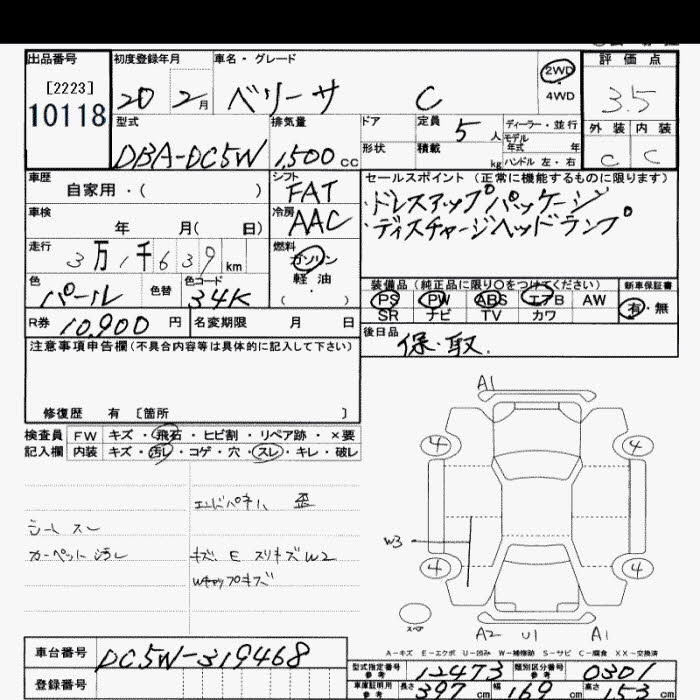 出品番号 初度登録年月 車名・グレード 評価点
[2223]
10118
20 2月 ベリーサ C 2WD 3.5
4WD
型式 排気量 ドア 定員 5人 ディーラー・並行 外装 内装
DBA-DC5W 1,500cc 形状 積載 kg モデル年式 年 C C
ハンドル 左・右
車歴 シフト セールスポイント(正常に機能するものに限ります)
自家用・( ) FAT ・ドレスアップパッケージ
車検 冷房 ・ディスチャージヘッドランプ
年 月( 日) AAC
走行 燃料
3万1千639km ガソリン
軽油
( )
色 色替 色コード 装備品(純正品に限り〇をつけてください) 新車保証書
パール 34K PS PW ABS エアB AW 有・無
SR ナビ TV カワ
R券 10,900円 名変期限 月 日 後日品
保・取.
注意事項申告欄(不具合内容等は具体的に記入して下さい)
修復歴 有 [箇所 ]
検査員 FW キズ・飛石・ヒビ割・リペア跡・×要
記入欄 内装 キズ・汚レ・コゲ・穴・スレ・キレ・破レ
エンドパネル 歪
シートスレ
カーペット汚レ キズ、E スリキズW2
Wチップキズ
A1
4 4
W3
4 4
スペア
A2 U1 A1
A-キズ E-エクボ U-凹み W-補修跡 S-サビ C-腐食 XX-交換済
車台番号 DC5W-319468
登録番号
型式指定番号 参考 12473 類別区分番号 参考 0301
車庫証明用 参考 長さ 397cm 幅 169cm 高さ 153cm